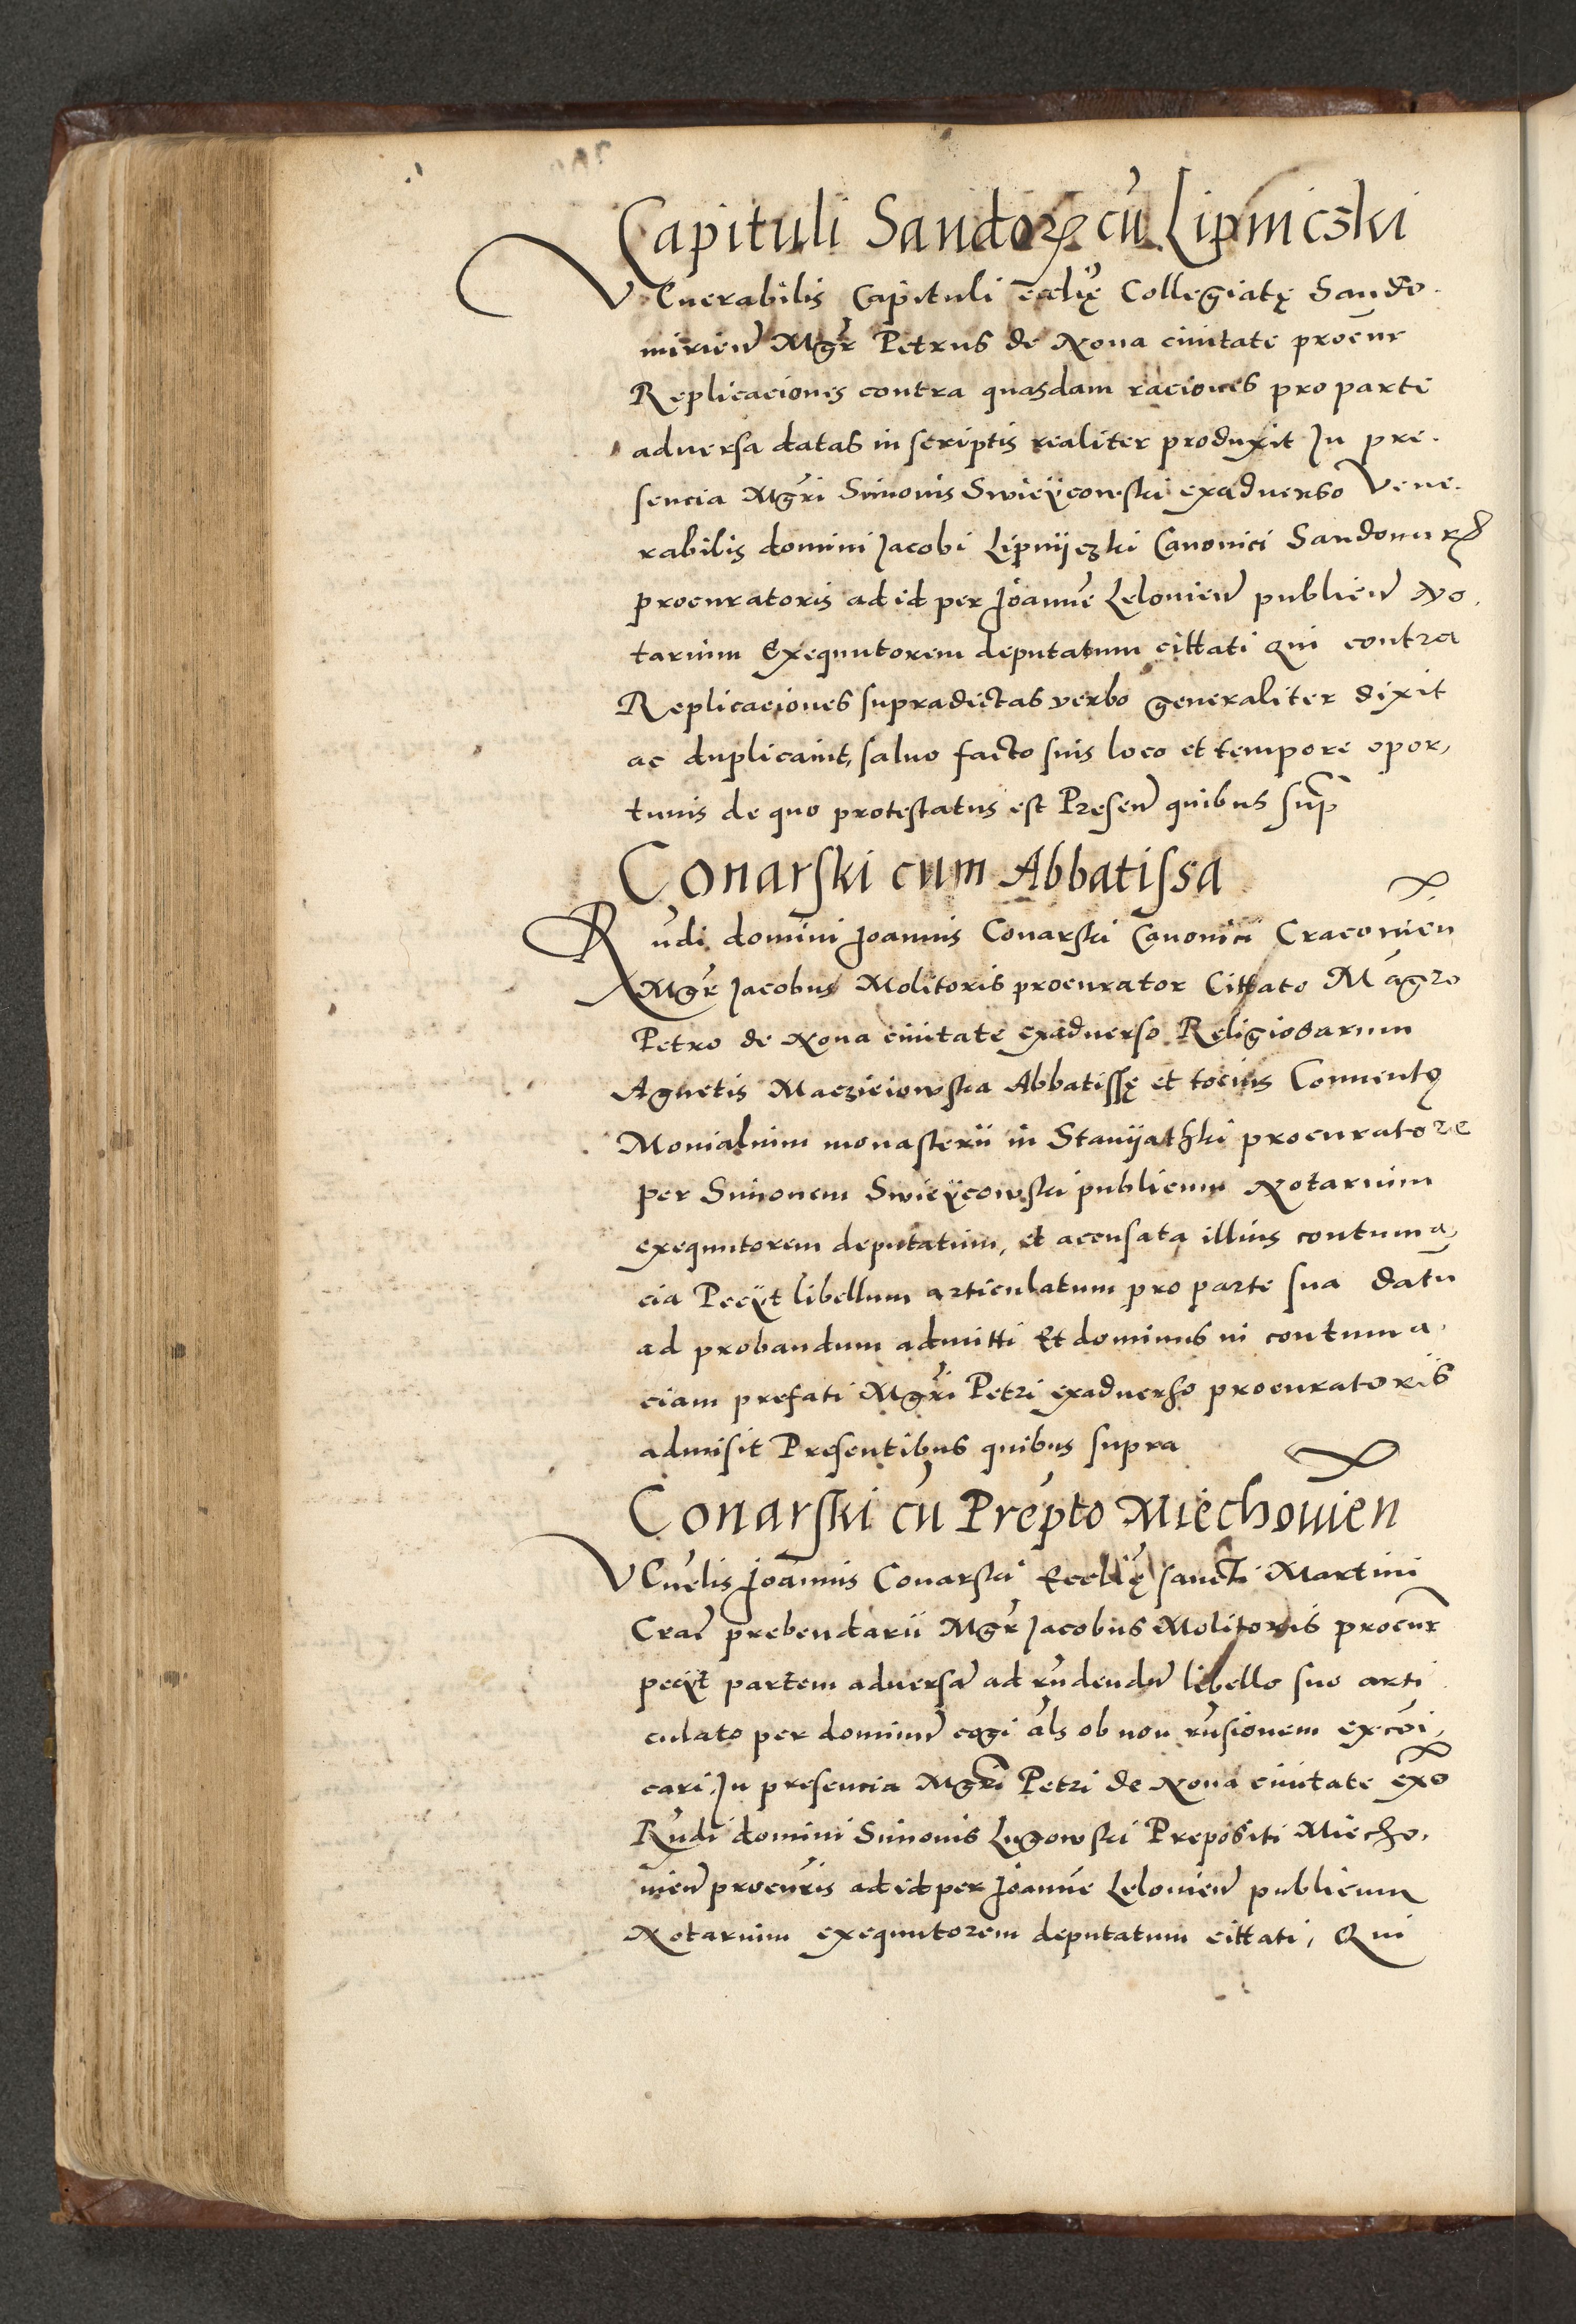 Capituli Sandor cū Lipniczki
Venerabilis Capituli eccliē Collegiatę Sando
mirien Mgr Petrus de Nova civitate procur
Replicaciones contra quasdam raciones pro parte
adversa datas in scriptis realiter produxit In pre
sencia Mgri Simonis Swieÿcowski exadverso Vene
rabilis domini Jacobi Lipnijczki Canonici Sandomir
procuratoris ad id per Joannē Lelovien publicū No
tarium Exequutorem deputatum cittati Qui contra
Replicaciones supradictas verbo generaliter dixit
ac duplicavit, salvo facto suis loco et tempore opor,
tunis de quo protestatus est Presen quibus sup
Conarski cum Abbatissa
Rndi domini Joannis Conarski Canonici Cracovien
Mgr Jacobus Molitoris procurator Cittato Magro
Petro de Nova civitate exadverso Religiosarum
Agnetis Maczieiowska Abbatissę et tocius Conventus
Monialium monasterii in Stanijathki procuratore
per Simonem Swieÿcowski publicum Notarium
exequutorem deputatum, et accusata illius contuma,
cia Peciit libellum articulatum pro parte sua datū
ad probandum admitti Et dominus in contuma
ciam prefati Mgri Petri exadverso procuratoris
admisit Presentibus quibus supra
Conarski cū Prepto Miechovien
Venlis Joannis Conarski Eccliē sancti Martini
Crac prebendarii Mgr Jacobus Molitoris procur
peciit partem adversā ad rndendū libello suo arti
culato per dominū cogi als ob non rnsionem excōi,
cari, In presencia Mgri Petri de Nova civitate exo
Rndi domini Simonis Lugowski Prepositi Miecho,
vien procuris ad id per Joannē Lelovien publicum
Notarium exequutorem deputatum cittati, Qui